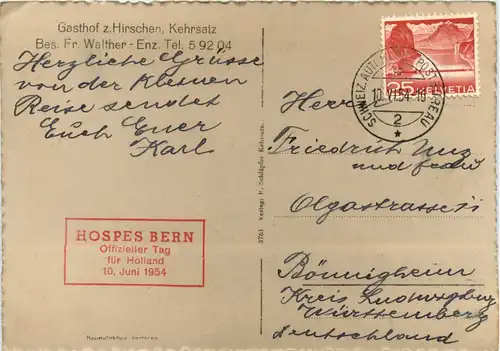 Gasthof z. Hirschen, Kehrsatz
Bes. Fr. Walther - Enz. Tel. 5 92 04
Herzliche Grüsse
von der kleinen
Reise sendet
Euch Euer
Karl
HOSPES BERN
Offizieller Tag
für Holland
10. Juni 1954
3761 Verlag: P. Schläpfer Kehrsatz.
25 HELVETIA
SCHWEIZ. AUTOMOBIL-POSTBUREAU
10.VI.54.-18
2
Herr
Friedrich Unz
und Frau
Olgastrasse
Bönnigheim
Kreis Ludwigsburg
Württemberg
Deutschland